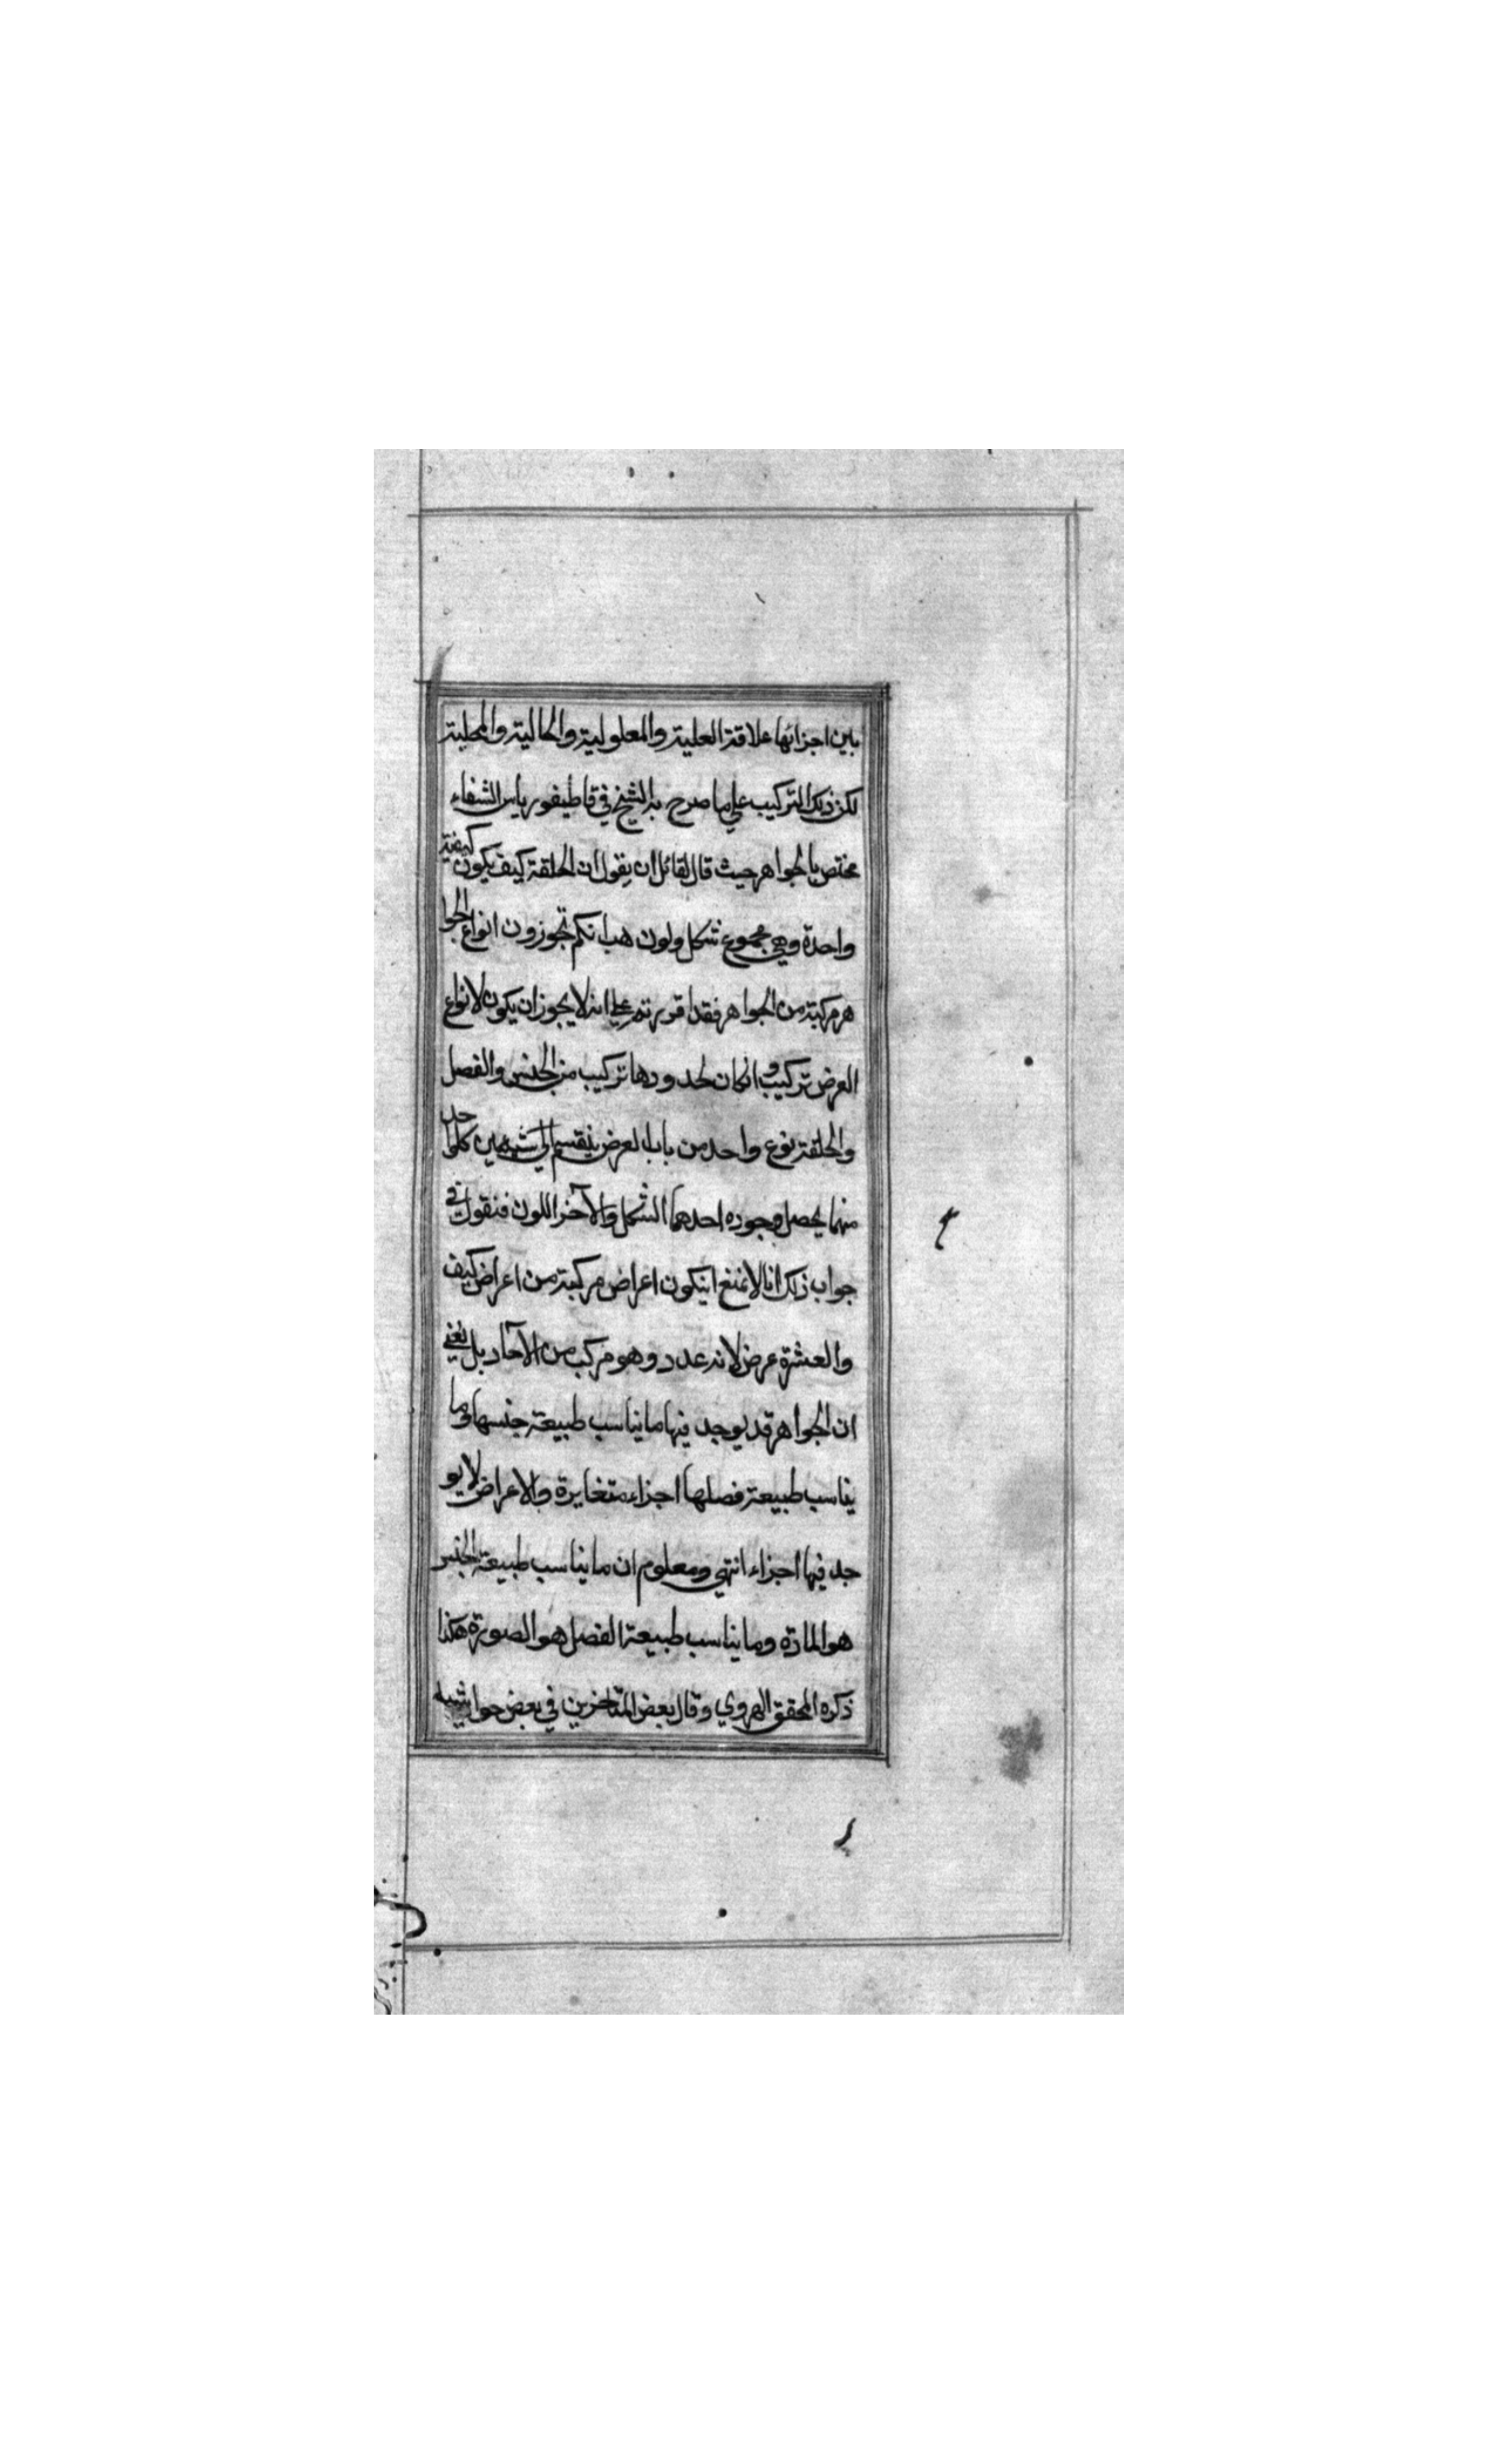 بين اجزائها علاقة العلية والمعلولية والحالية والمحلية
لكن ذلك التركيب على ما صرح به الشيخ في قاطيفورياس الشفاء
مختص بالجواهر حيث قال لقائل ان يقول ان الخلقة كيف يكون كيفية
واحدة وهي مجموع شكل ولون هب انكم تجوزون انواع الجوا
هر مركبة من الجواهر فقد اقررتم على انه لا يجوز ان يكون لانواع
العرض تركيب و انكان لحدودها تركيب من الجنس والفصل
والخلقة نوع واحد من باب العرض ينقسم الى شيئين كلوا حد
منهما يحصل وجوده احدهما الشكل والآخر اللون فنقول في
جواب ذلك انا لا نمنع انيكون اعراض مركبة من اعراض كيف
والعشرة عرض لانه عدد وهو مركب من الآحاد بل نعني
ان الجواهر قد يوجد فيها ما يناسب طبيعة جنسها وما
يناسب طبيعة فصلها اجزاء متغايرة والاعراض لا يو
جد فيها اجزاء انتهى ومعلوم ان ما يناسب طبيعة الجنس
هو المادة وما يناسب طبيعة الفصل هو الصورة هكذا
ذكره المحقق الهروي وقال بعض المتاخرين في بعض حواشيه